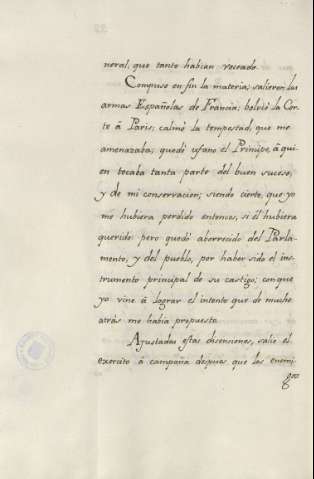 neral, que tanto habian voceado.
Compuso en fin la materia; salieron las
armas Españolas de Francia; bolvió la Cor-
te á Paris; calmó la tempestad, que me
amenazaba; quedó ufano el Principe, á qui-
en tocaba tanta parte del buen suceso,
y de mi conservacion; siendo cierto, que yo
me hubiera perdido entonces, si él hubiera
querido: pero quedó aborrecido del Parla-
mento, y del pueblo, por haber sido el ins-
trumento principal de su castigo; conque
yo vine á lograr el intento que de mucho
atrás me habia propuesto.
Ajustadas estas disensiones, salió el
exercito á campaña despues que los enemi-
gos